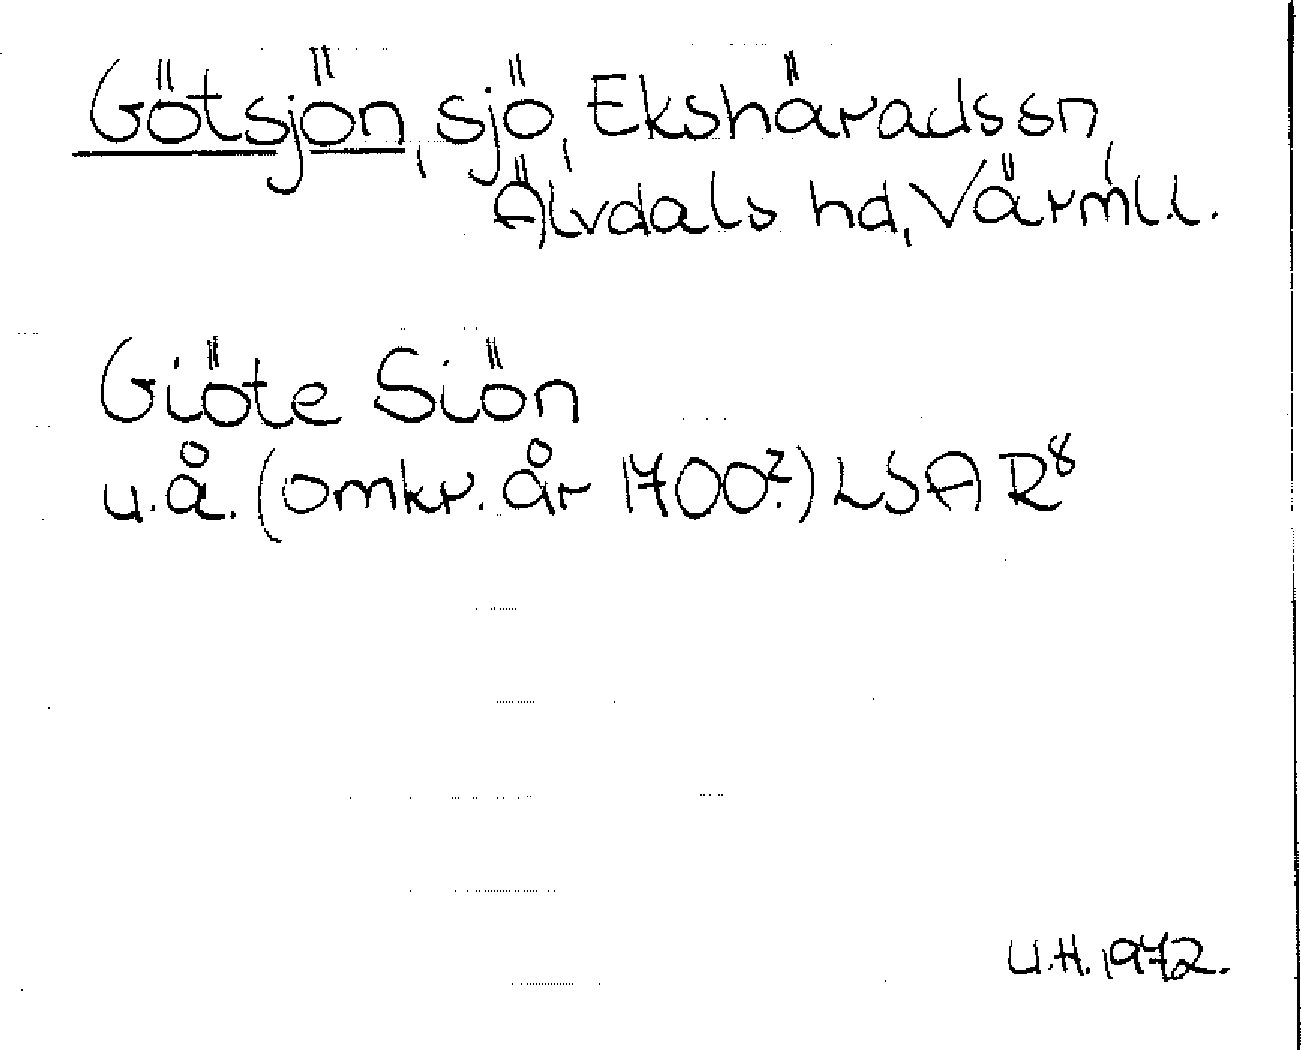 Götsjön, sjö, Ekshärads sn,
Älvdals hd, Värml. l.
Giöte Siön
u.å. (omkr. år 1700?) LSA R8
U.H. 1972.